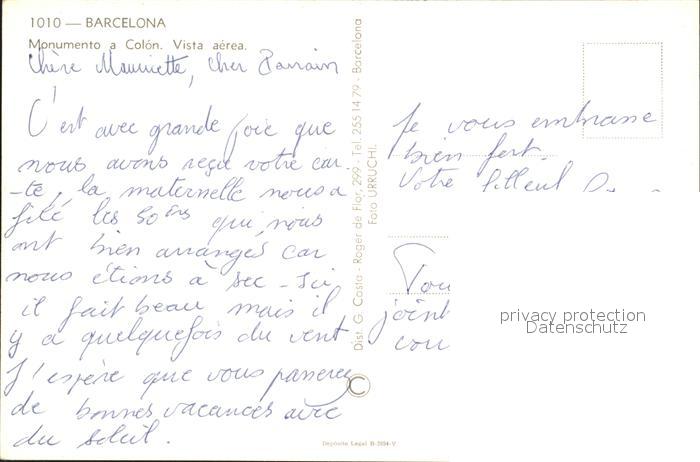 1010 — BARCELONA
Monumento a Colón. Vista aérea.
Chère Mauricette, cher Parrain
C'est avec grande joie que
nous avons reçu votre car
-te, la maternelle nous a
filé les 50 ens qui nous
ont bien arrangés car
nous étions à sec - Ici
il fait beau mais il
y a quelquefois du vent
J'espère que vous passerez
de bonnes vacances avec
du soleil.
Dist. G. Costa - Roger de Flor, 299 - Tel. 255 14 79 - Barcelona
Foto URRUCHI.
©
Depósito Legal B-
Je vous embrasse
bien fort.
Votre filleul D
Tou
joint
cou
privacy protection
Datenschutz